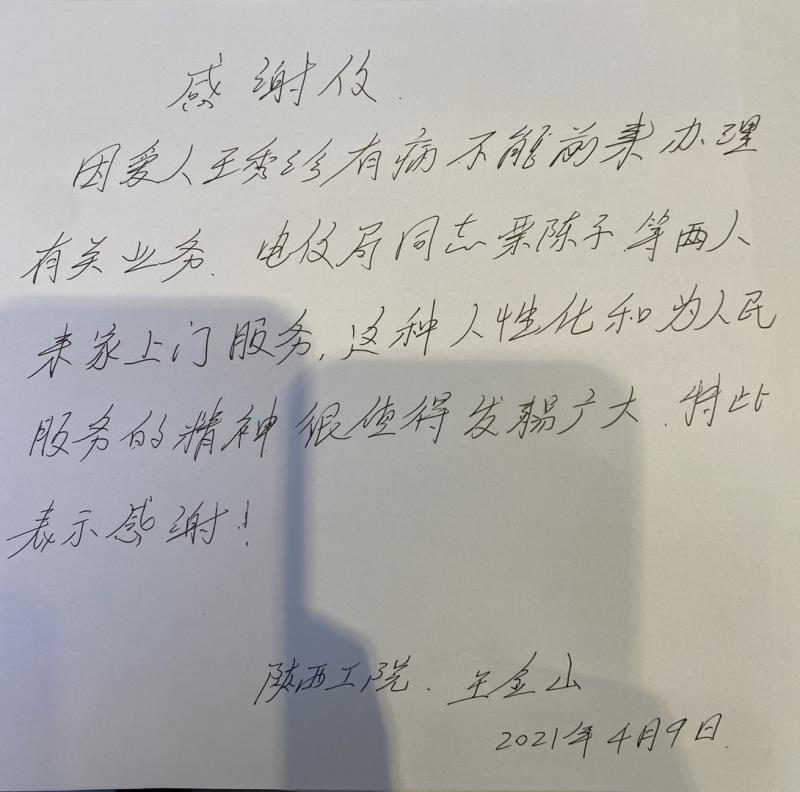 感谢信.
因爱人王秀珍有病不能前来办理
有关业务. 电信局同志栗陈子等两人
来家上门服务, 这种人性化和为人民
服务的精神很值得发扬广大. 特此
表示感谢!
陕西工院. 王金山
2021年4月9日.